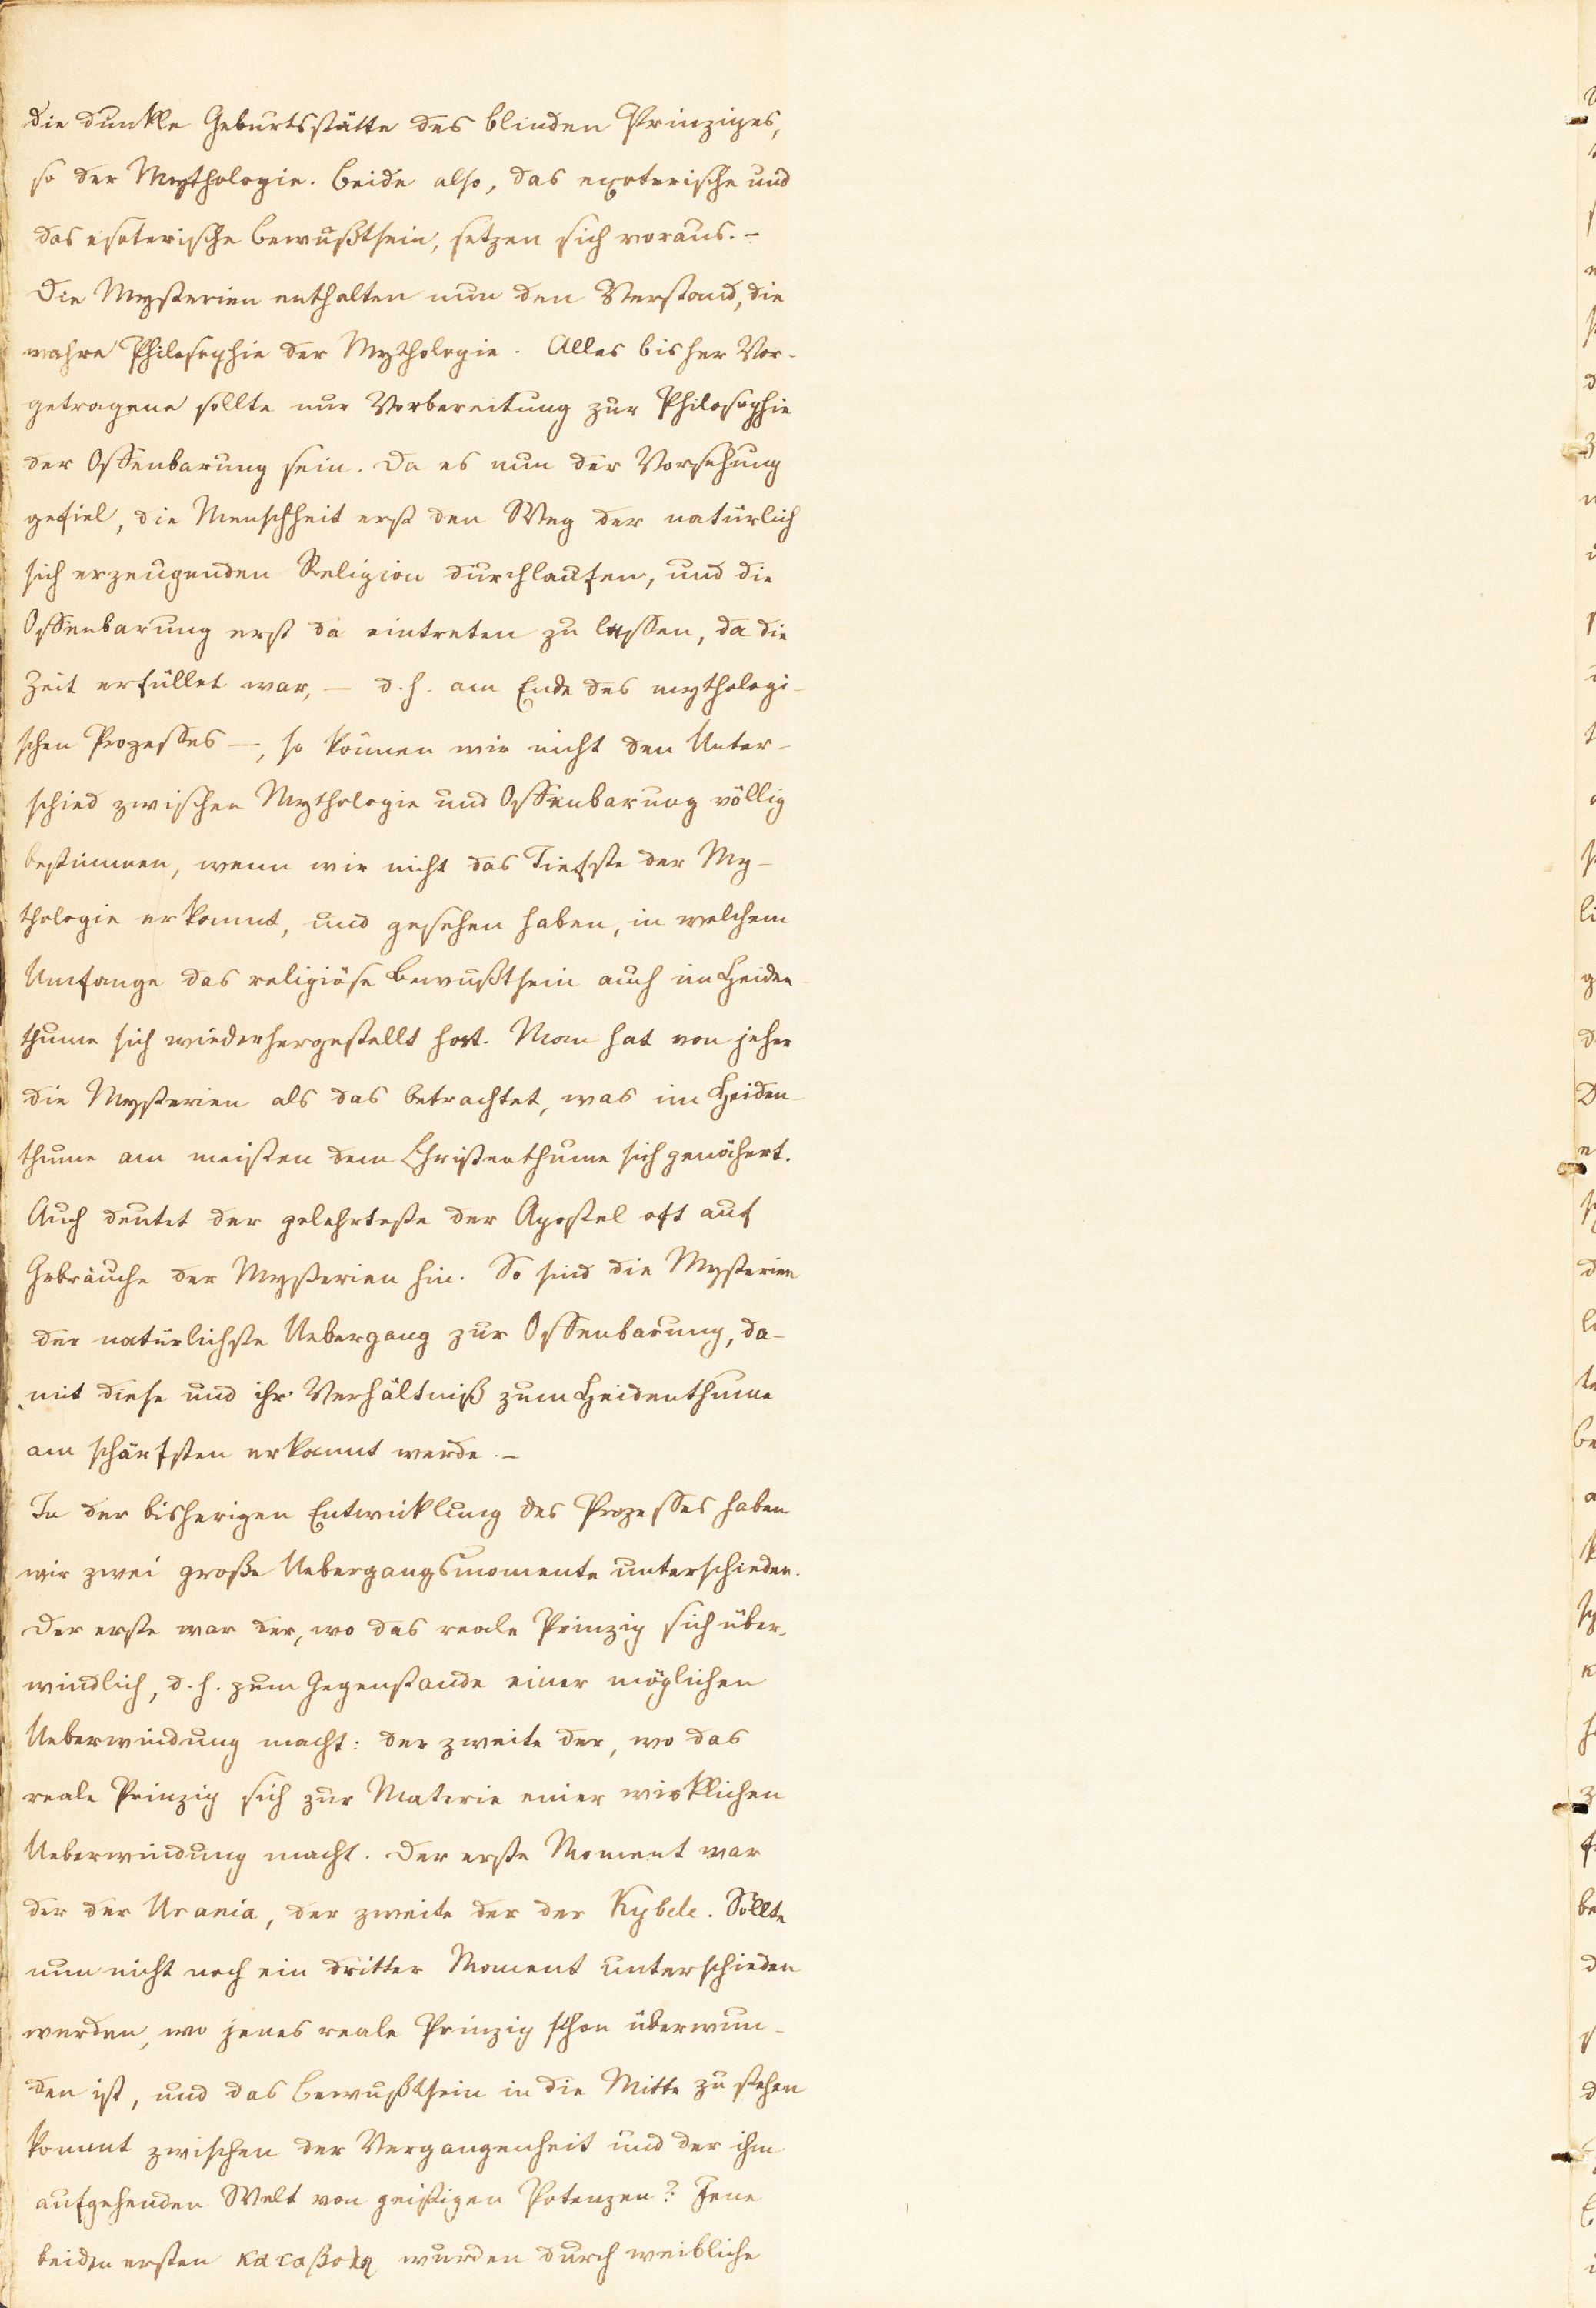 die dunkle Geburtsstätte des blinden Prinzipes,
so der Mythologie. Beide also, das exoterische und
das esoterische Bewußtsein, setzen sich voraus. –
Die Mysterien enthalten nun den Verstand, die
wahre Philosophie der Mythologie. Alles bisher Vor-
getragene sollte nur Vorbereitung zur Philosophie
der Offenbarung sein. Da es nun der Vorsehung
gefiel, die Menschheit erst den Weg der natürlich
sich erzeugenden Religion durchlaufen, und die
Offenbarung erst da eintreten zu lassen, da die
Zeit erfüllet war, — d. h. am Ende des mythologi-
schen Prozesses —, so können wir nicht den Unter-
schied zwischen Mythologie und Offenbarung völlig
bestimmen, wenn wir nicht das Tiefste der My-
thologie erkannt, und gesehen haben, in welchem
Umfange das religiöse Bewußtsein auch im Heiden-
thume sich wiederhergestellt hat. Man hat von jeher
die Mysterien als das betrachtet, was im Heiden-
thume am meisten dem Christenthume sich genähert.
Auch deutet der gelehrteste der Apostel oft auf
Gebräuche der Mysterien hin. So sind die Mysterien
der natürlichste Uebergang zur Offenbarung, da-
mit diese und ihr Verhältniß zum Heidenthume
am schärfsten erkannt werde. –
In der bisherigen Entwicklung des Prozesses haben
wir zwei große Uebergangsmomente unterschieden.
Der erste war der, wo das reale Prinzip sich über-
windlich, d. h. zum Gegenstande einer möglichen
Ueberwindung macht: der zweite der, wo das
reale Prinzip sich zur Materie einer wirklichen
Ueberwindung macht. Der erste Moment war
der der Urania, der zweite der der Kybele. Sollte
nun nicht noch ein dritter Moment unterschieden
werden, wo jenes reale Prinzip schon überwun-
den ist, und das Bewußtsein in die Mitte zu stehen
kommt zwischen der Vergangenheit und der ihm
aufgehenden Welt von geistigen Potenzen? Jene
beiden ersten καταβολη wurden durch weibliche